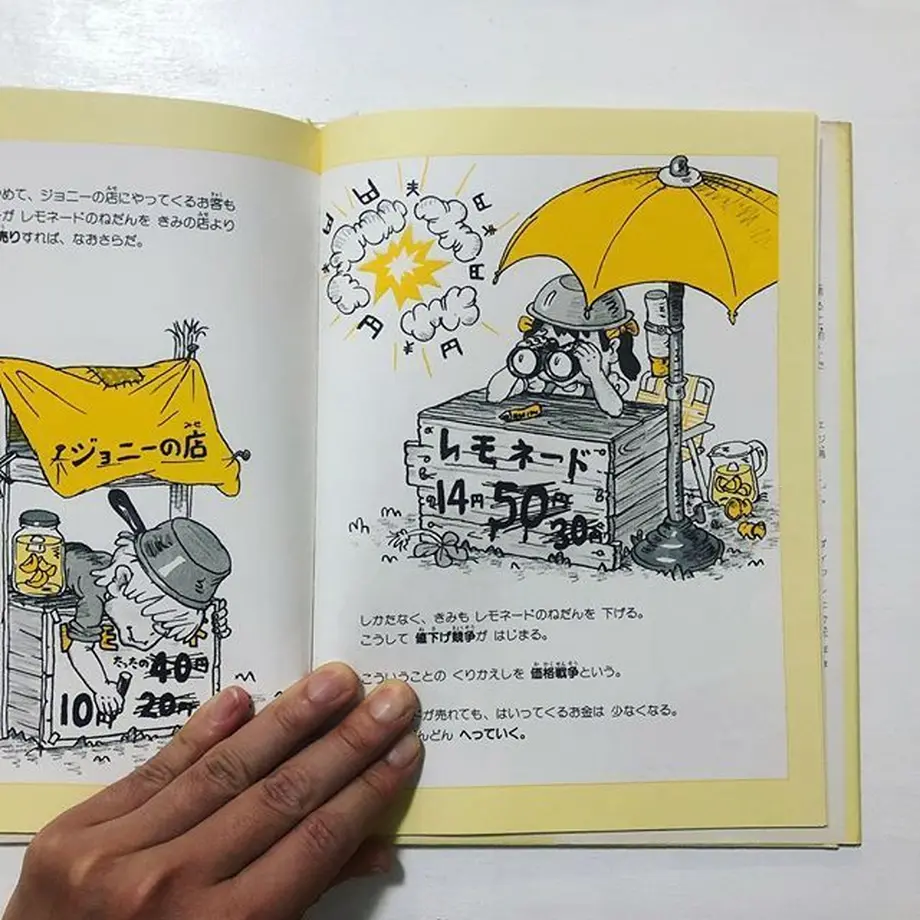 めて、ジョニーの店にやってくるお客も
が レモネードのねだんを きみの店より
売りすれば、なおさらだ。
ジョニーの店
たったの 40円
10 20円
円
レモネード
14円 50円
30円
しかたなく、きみも レモネードのねだんを 下げる。
こうして 値下げ競争が はじまる。
こういうことの くりかえしを 価格戦争という。
が売れても、はいってくるお金は 少なくなる。
んどん へっていく。